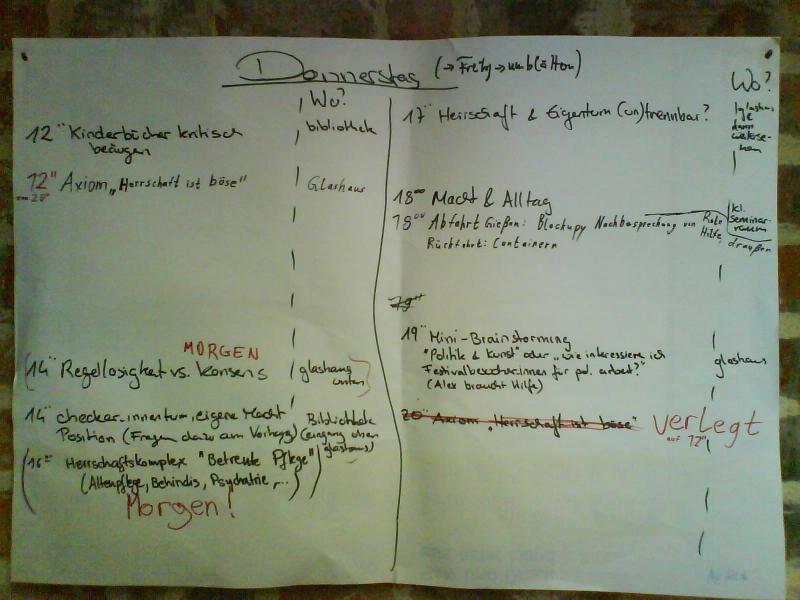 Donnerstag (→ Freitag → umblättern)
Wo?
12°° Kinderbücher kritisch
beäugen
bibliothek
12°° Axiom „Herrschaft ist böse"
Glashaus
MORGEN
(14°° Regellosigkeit vs. Konsens
glashaus
unten)
14°° checker_innentum, eigene Macht
Position (Fragen dazu am Vortag)
Bibliothek
(eingang oben
glashaus)
(16°° Herrschaftskomplex "Betreute Pflege"
(Altenpflege, Behindis, Psychatrie, ...)
Morgen!
Wo?
17°° Herrschaft & Eigentum (un)trennbar?
18°° Macht & Alltag
kl.
seminar
raum
18°° Abfahrt Gießen: Blockupy Nachbesprechung von Rote
Hilfe
draußen
Rückfahrt: Containern
19°°
19°° Mini-Brainstorming
"Politik & Kunst" oder „wie interessiere ich
Festivalbesucher.innen für pol. arbeit?"
(Alex braucht Hilfe)
glashaus
20°° Axiom „Herrschaft ist böse"
verlegt
auf 12°°